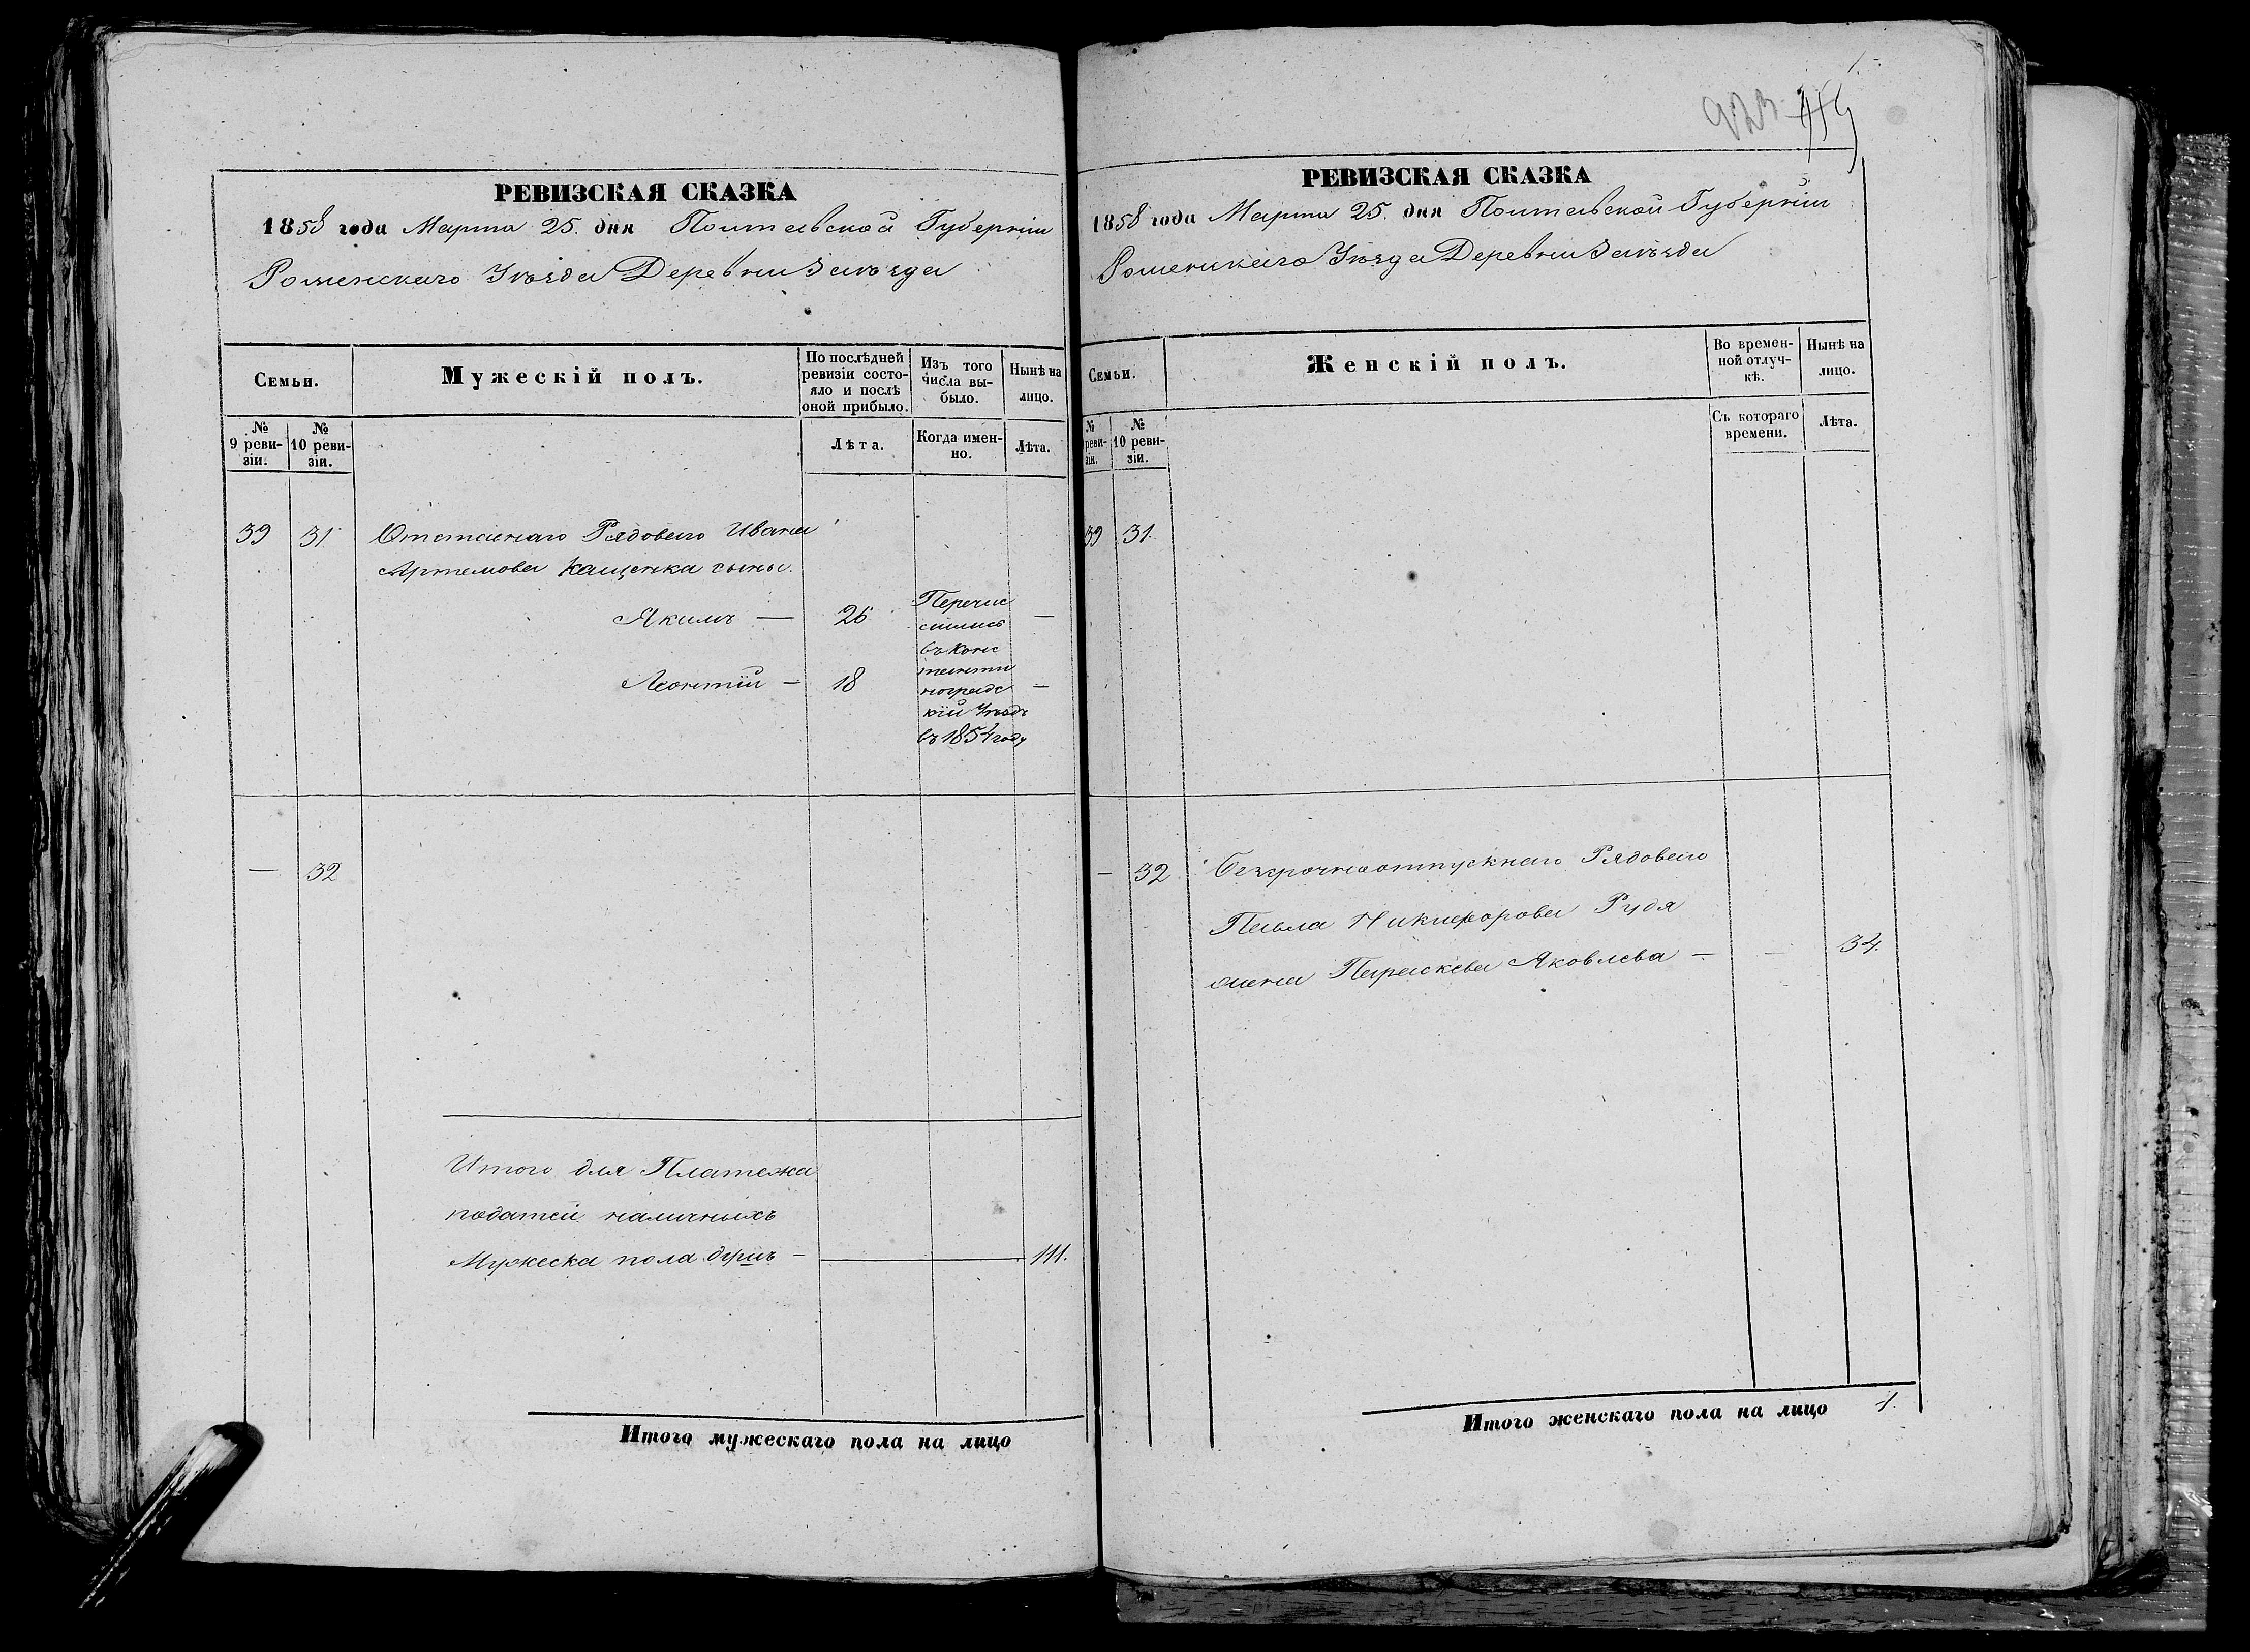 РЕВИЗСКАЯ СКАЗКА
1858 года Марта 25. дня Полтавской Губерніи
Роменскаго Уѣзда Деревни Заѣзда
Семьи.
Мужескій полъ.
По послѣдней ревизіи состояло и послѣ оной прибыло.
Изъ того числа выбыло.
Нынѣ на лицо.
№ 9 ревизіи.
№ 10 ревизіи.
Лѣта.
Когда именно.
Лѣта.
39 31. Отставнаго Рядоваго Ивана
Артемова Кащенка сыны.
Якимъ — 26 —
Леонтій — 18 —
Перечис
лились
въ Конс
танти
ноградс
кій Уѣздъ
въ 1854 году
— 32
Итого для Платежа
податей наличныхъ
Мужеска пола душъ — 111.
Итого мужескаго пола на лицо
923
РЕВИЗСКАЯ СКАЗКА
1858 года Марта 25. дня Полтавской Губерніи
Роменскаго Уѣзда Деревни Заѣзда
Семьи.
Женскій полъ.
Во временной отлучкѣ.
Нынѣ на лицо.
№ ревизіи.
№ 10 ревизіи.
Съ котораго времени.
Лѣта.
39 31.
— 32 Безсрочноотпускнаго Рядоваго
Павла Никифорова Рудя
жена Параскева Яковлева — — 34.
Итого женскаго пола на лицо 1.